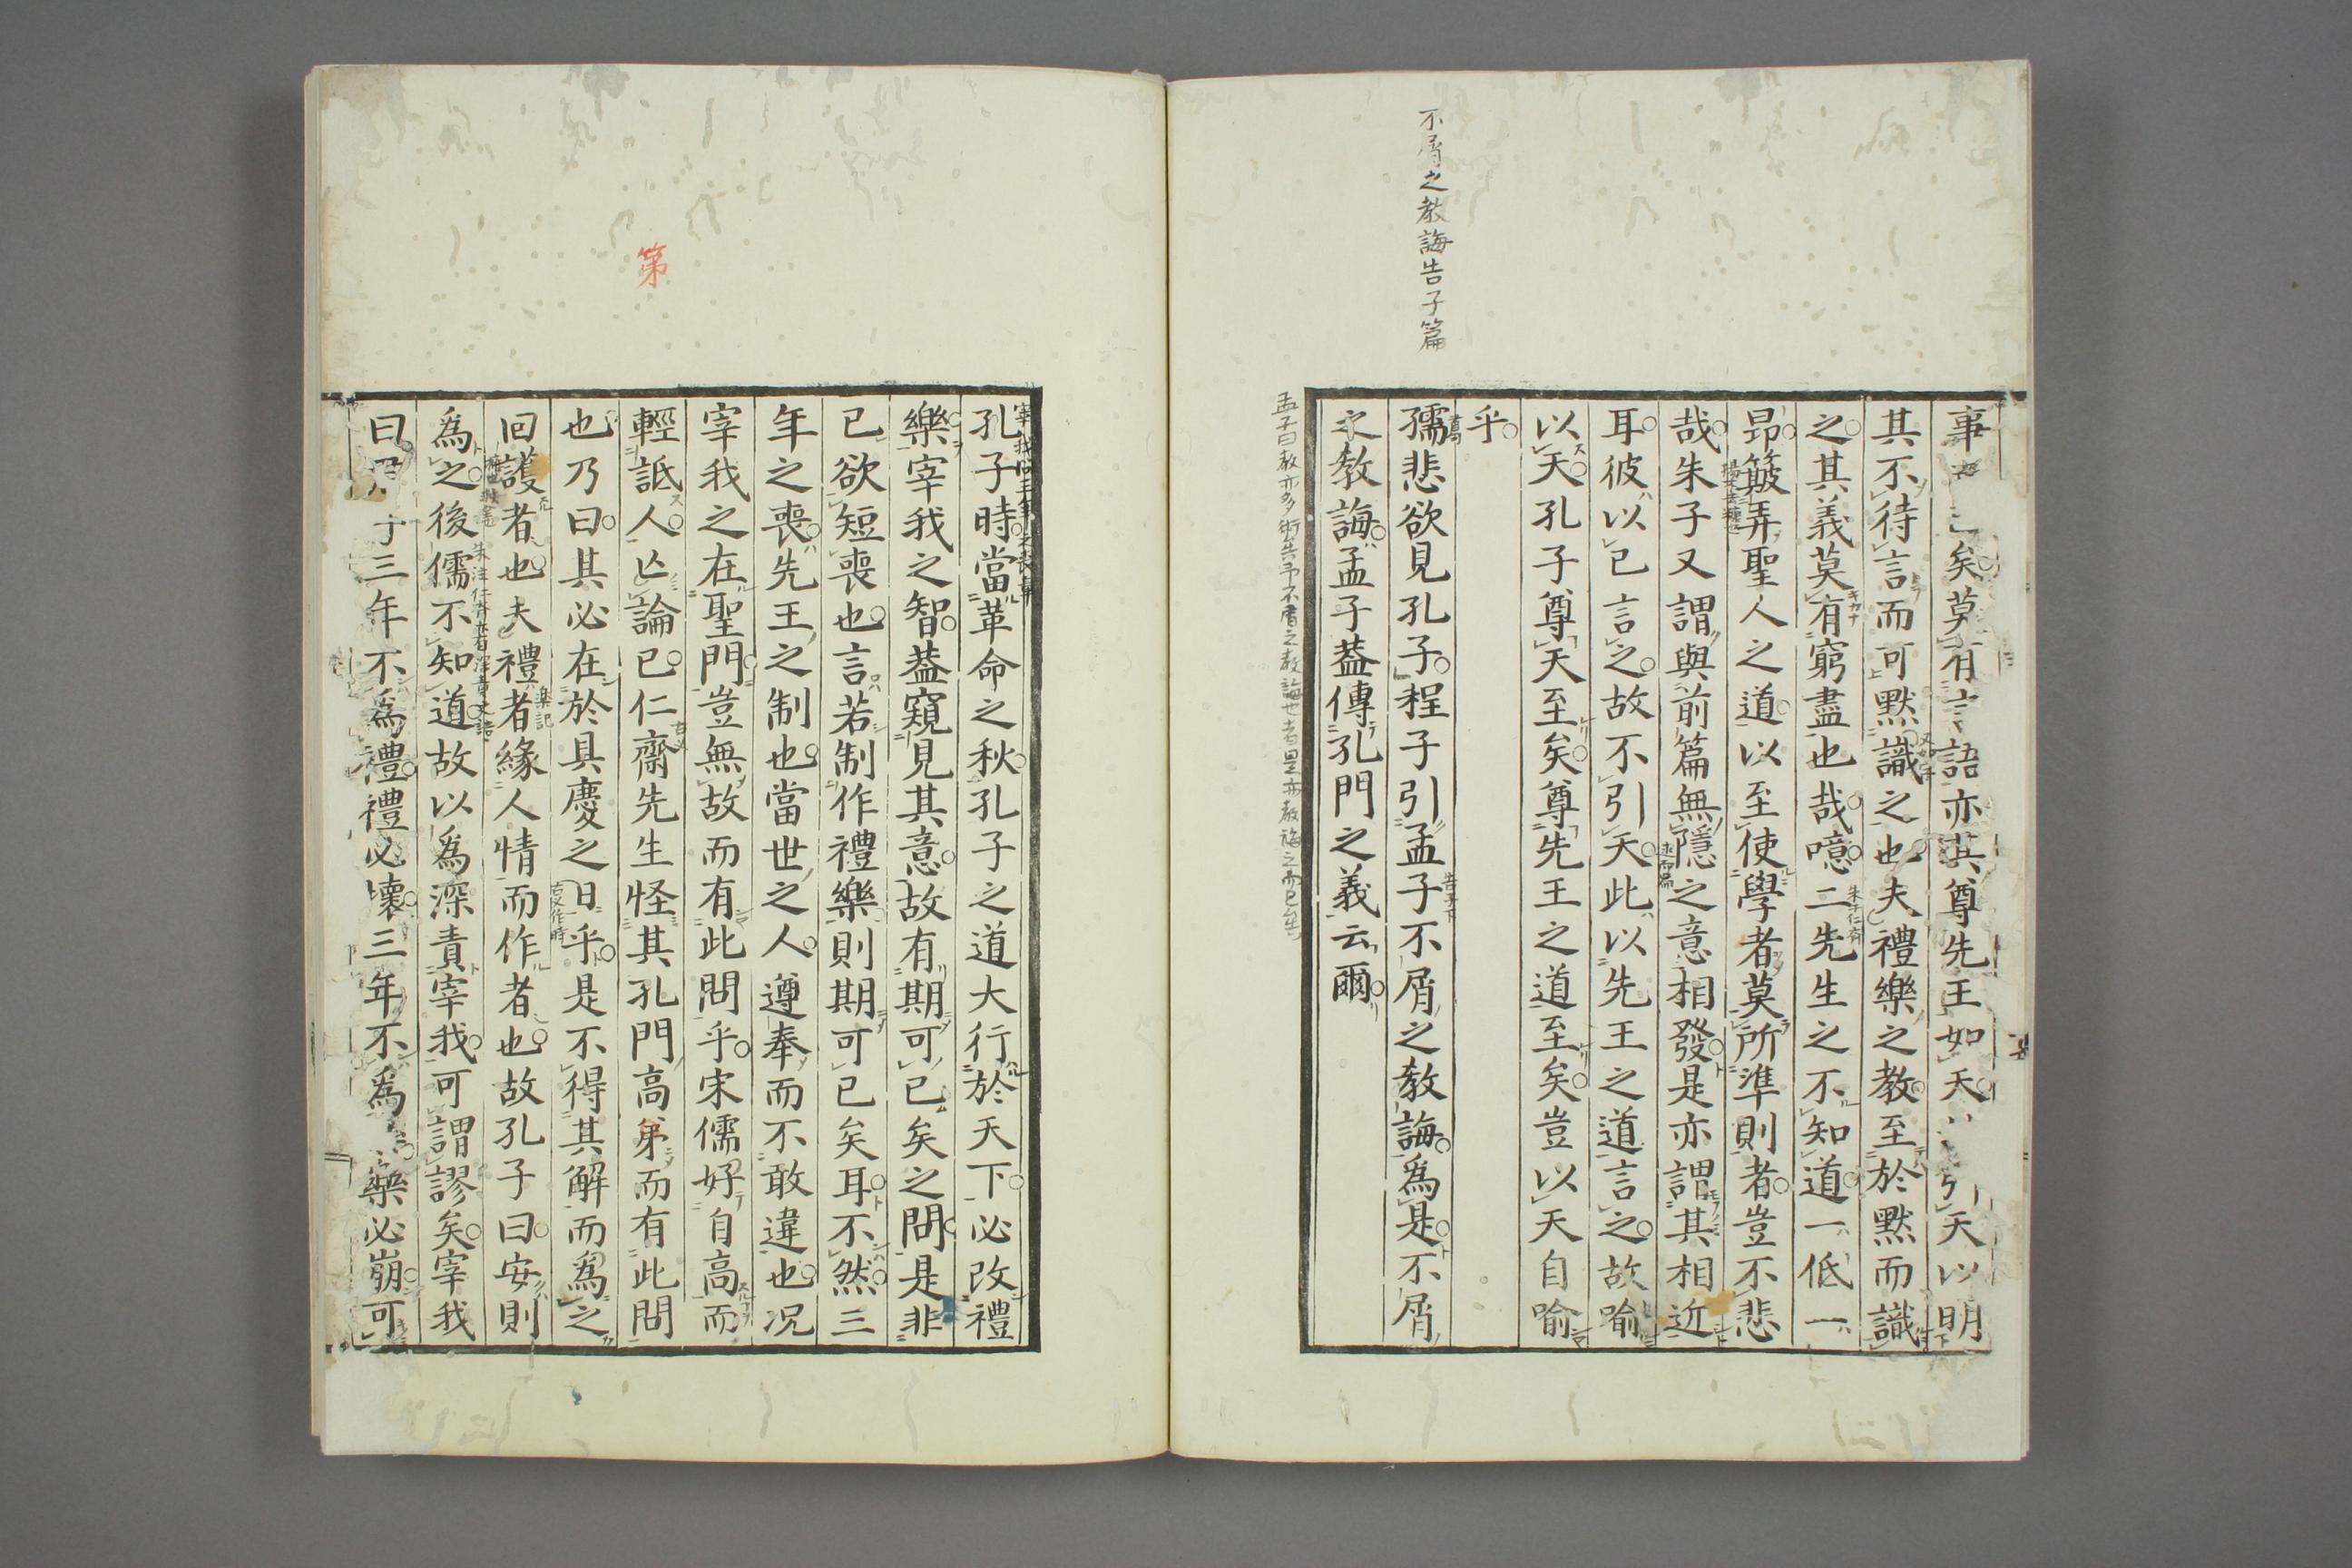 不屑之教誨告子篇
事已矣莫有言語亦其尊先王如天引天以明
其不待言而可默識之也夫禮樂之教至於默而識
之其義莫有窮盡也哉噫二先生之不知道一低一
昂簸弄聖人之道以至使學者莫所準則者豈不悲
哉朱子又謂與前篇無隱之意相發是亦謂其相近
耳彼以已言之故不引天此以先王之道言之故喻
以天孔子尊天至矣尊先王之道至矣豈以天自喻
乎
孺悲欲見孔子程子引孟子不屑之教誨爲是不屑
之教誨孟子葢傳孔門之義云爾
孟子曰教亦多術矣予不屑之教誨也者是亦教誨之而已矣
宰我問三年之喪章
孔子時當革命之秋孔子之道大行於天下必改禮
樂宰我之智葢窺見其意故有期可已矣之問是非
已欲短喪也言若制作禮樂則期可已矣耳不然三
年之喪先王之制也當世之人遵奉而不敢違也况
宰我之在聖門豈無故而有此問乎宋儒好自高而
輕詆人亾論已仁齋先生怪其孔門高弟而有此問
也乃曰其必在於具慶之日乎是不得其解而爲之
回護者也夫禮者緣人情而作者也故孔子曰安則
爲之後儒不知道故以爲深責宰我可謂謬矣宰我
曰君子三年不爲禮禮必壞三年不爲樂樂必崩可
第